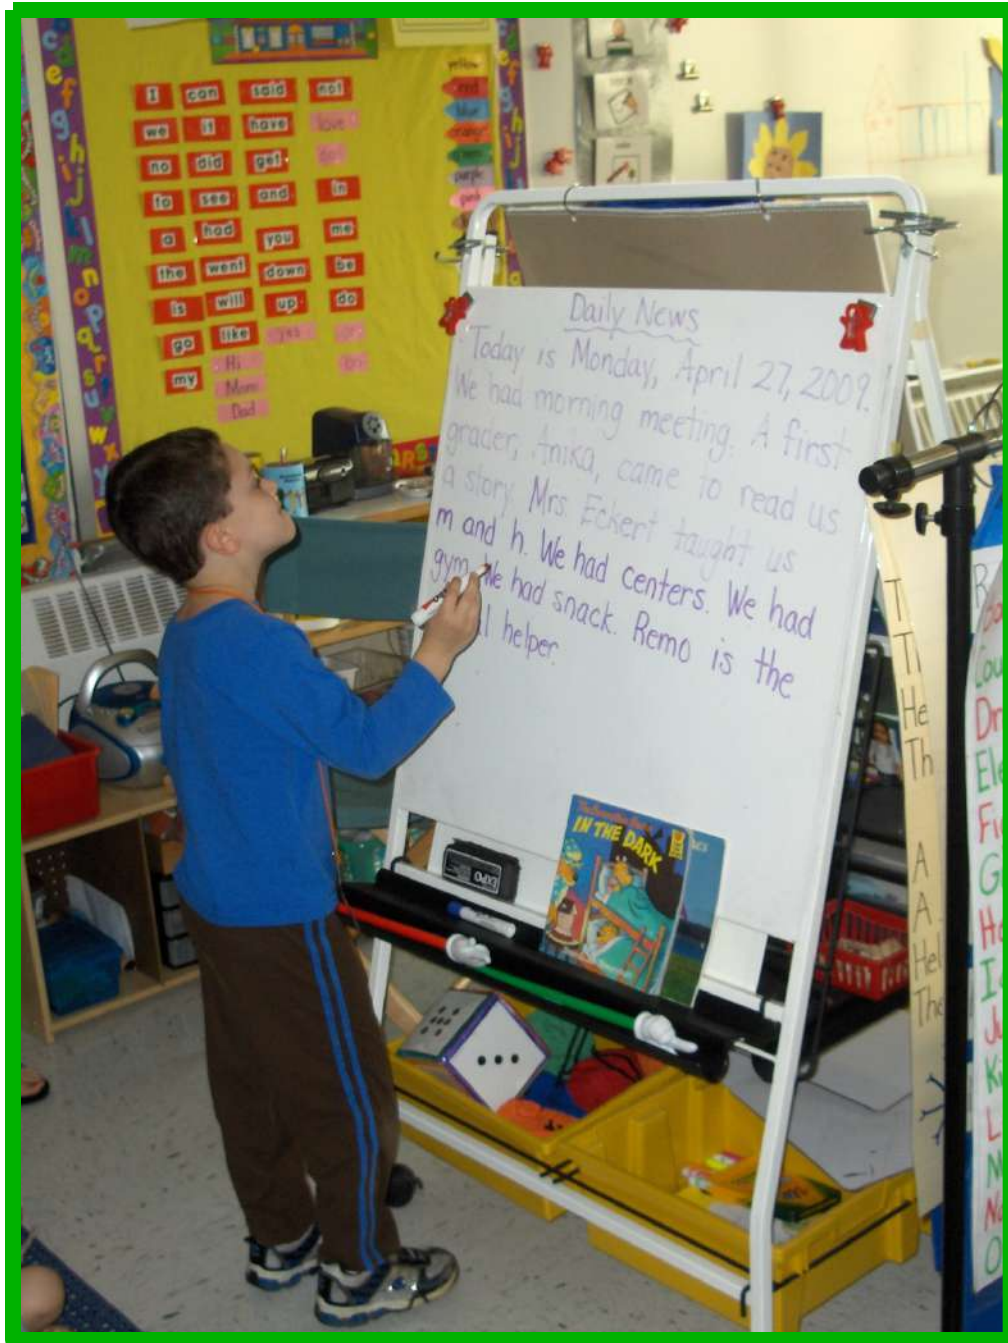 I can said not
we it have love
no did get
to see and in
a had you me
the went down be
is will up do
go like yes
my Hi
Mom
Dad
yellow
red
blue
orange
green
purple
pink
Daily News
Today is Monday, April 27, 2009.
We had morning meeting. A first
grader, Anika, came to read us
a story. Mrs. Eckert taught us
m and h. We had centers. We had
gym. We had snack. Remo is the
helper.
EXPO
IN THE DARK
T
Th
He
Th
A
A
Hel
The